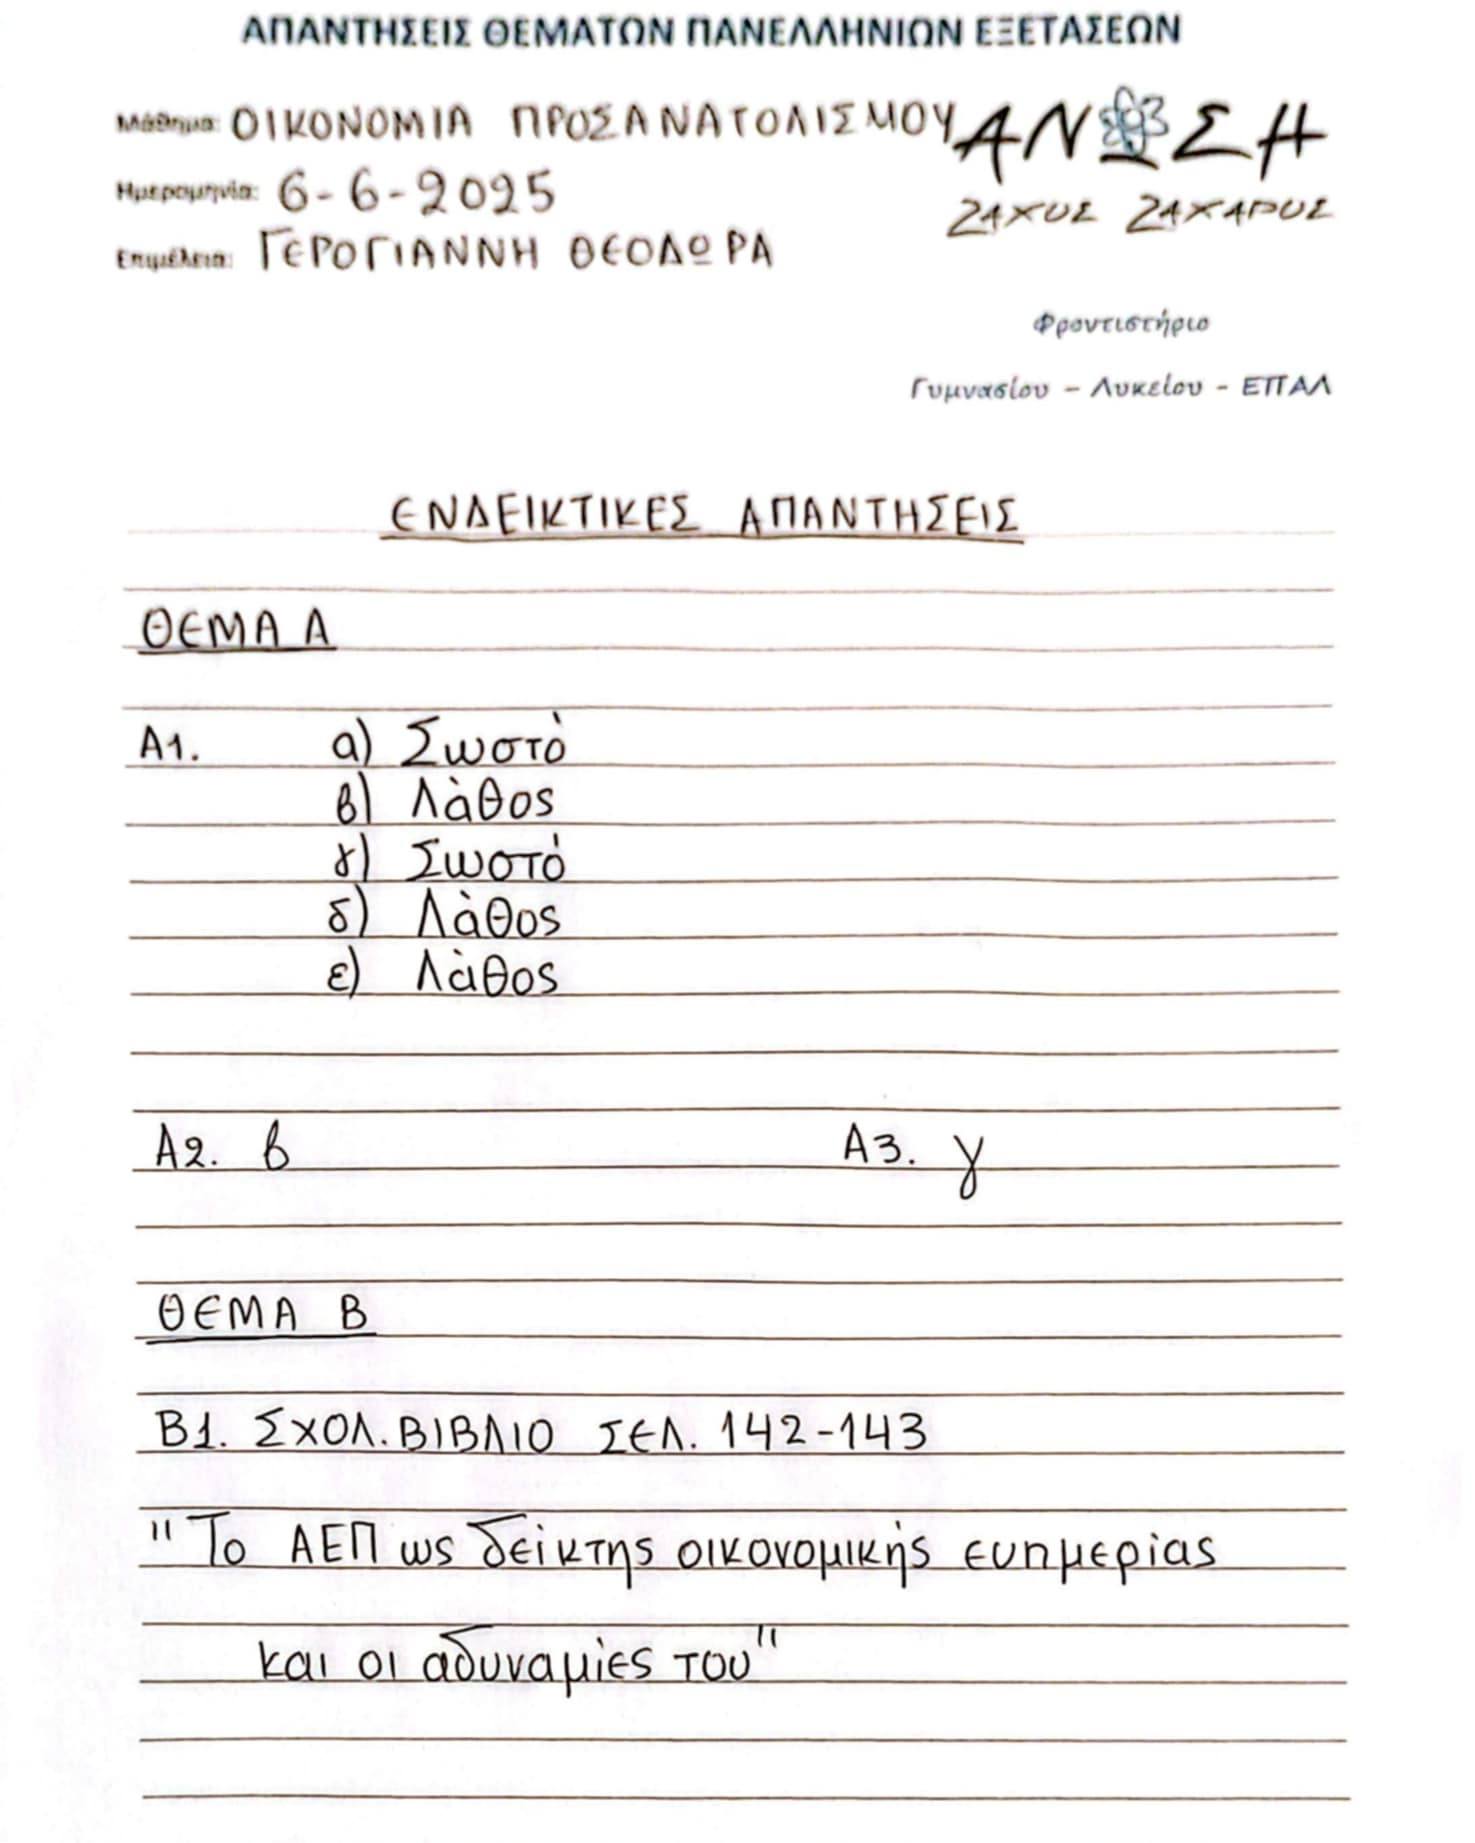 ΑΠΑΝΤΗΣΕΙΣ ΘΕΜΑΤΩΝ ΠΑΝΕΛΛΗΝΙΩΝ ΕΞΕΤΑΣΕΩΝ
Μάθημα: ΟΙΚΟΝΟΜΙΑ ΠΡΟΣΑΝΑΤΟΛΙΣΜΟΥ
ΑΝΩΣΗ
Ημερομηνία: 6-6-2025
ΖΑΧΟΣ ΖΑΧΑΡΟΣ
Επιμέλεια: ΓΕΡΟΓΙΑΝΝΗ ΘΕΟΔΩΡΑ
Φροντιστήριο
Γυμνασίου – Λυκείου - ΕΠΑΛ
ΕΝΔΕΙΚΤΙΚΕΣ ΑΠΑΝΤΗΣΕΙΣ
ΘΕΜΑ Α
Α1. α) Σωστό
β) Λάθος
γ) Σωστό
δ) Λάθος
ε) Λάθος
Α2. β Α3. γ
ΘΕΜΑ Β
Β1. ΣΧΟΛ. ΒΙΒΛΙΟ ΣΕΛ. 142-143
"Το ΑΕΠ ως δείκτης οικονομικής ευημερίας
και οι αδυναμίες του"